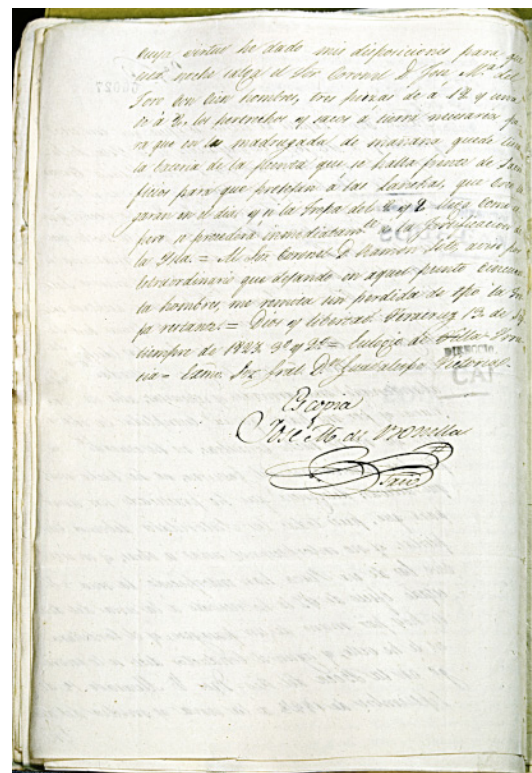 cuya virtud he dado mis disposiciones para que
esta noche salga el Sor Coronel D. José Ma. del
Toro con cien hombres, tres piezas de á 12 y una
de á 8, los pertrechos y sacos á tierra necesarios pa
ra que en la madrugada de mañana quede
la bateria de la que se halla frente de Sacri
ficios para que protejan á las lanchas, que
en el dia y n la Tropa del 2 y 8 luego como
pero se procederá inmediatamte. á la fortificacion de
la Isla. = Al Sor Coronel D. Ramon
extraordinario que dejando en aquel punto cincuen
ta hombres, me remita sin perdida de tpo la Tro
pa restante. = Dios y libertad. Veracruz 13 de Se
tiembre de 1823. 3º y 2º = Eulogio de Villa Urru
tia = Exmo. Sor. Gral. Dn. Guadalupe Victoria.
Es copia
José M. de Bonilla
Srio
DIRECCIO